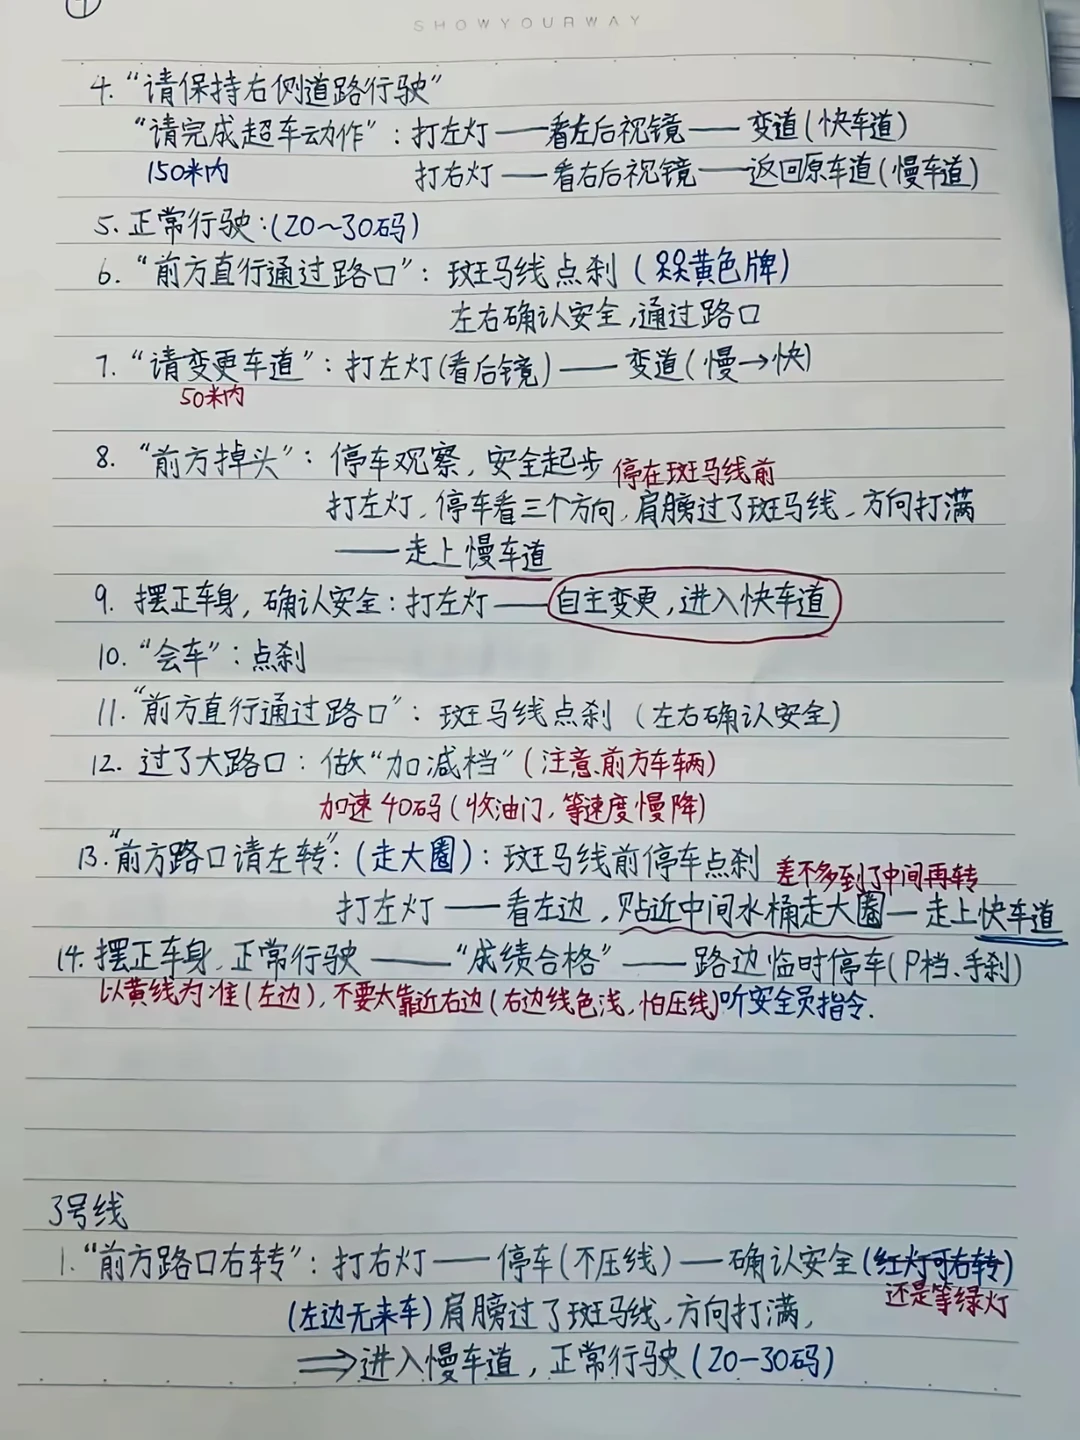 SHOWYOURWAY
4. “请保持右侧道路行驶”
“请完成超车动作”: 打左灯 —— 看左后视镜 —— 变道(快车道)
150米内 打右灯 —— 看右后视镜 —— 返回原车道(慢车道)
5. 正常行驶:(20~30码)
6. “前方直行通过路口”: 斑马线点刹 (黄色牌)
左右确认安全,通过路口
7. “请变更车道”: 打左灯(看后镜) —— 变道(慢→快)
50米内
8. “前方掉头”: 停车观察, 安全起步 停在斑马线前
打左灯, 停车看三个方向, 肩膀过了斑马线, 方向打满
—— 走上慢车道
9. 摆正车身, 确认安全: 打左灯 —— 自主变更, 进入快车道
10. “会车”: 点刹
11. “前方直行通过路口”: 斑马线点刹 (左右确认安全)
12. 过了大路口: 做“加减档”(注意前方车辆)
加速40码(收油门, 等速度慢降)
13. “前方路口请左转”: (走大圈): 斑马线前停车点刹 差不多到了中间再转
打左灯 —— 看左边, 贴近中间水桶走大圈 — 走上快车道
14. 摆正车身, 正常行驶 —— “成绩合格” —— 路边临时停车(P档、手刹)
以黄线为准(左边), 不要太靠近右边(右边线色浅, 怕压线)听安全员指令.
3号线
1. “前方路口右转”: 打右灯 —— 停车(不压线) — 确认安全(红灯可右转)
还是等绿灯
(左边无来车) 肩膀过了斑马线, 方向打满,
⇒ 进入慢车道, 正常行驶(20-30码)